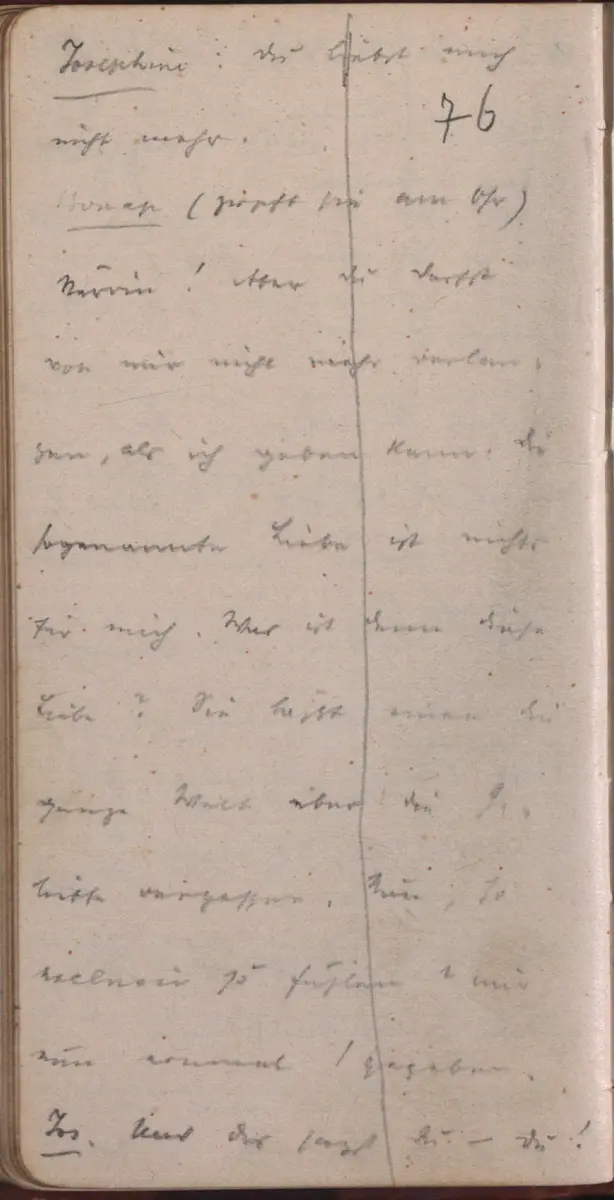 Josephine: du liebst mich
76
nicht mehr.
Bonap (zupft sie am Ohr)
Närrin! Aber du darfst
von mir nicht mehr verlan-
gen, als ich geben kann. Die
sogenannte Liebe ist nichts
für mich. Was ist denn diese
Liebe? Sie heißt einen die
ganze Welt über die Ge-
liebte vergessen. Nun, so
exclusiv zu fühlen ist mir
nun einmal nicht gegeben.
Jos. Und das sagst du – du!